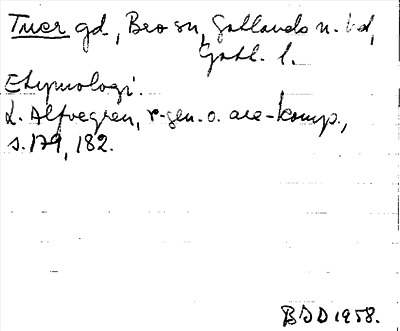 Tner gd, Bro sn, Gotlands n. hd,
Gotl. l.
Etymologi.
L. Alfvegren, r-gen. o. are-komp.,
s. 179, 182.
BSD 1958.